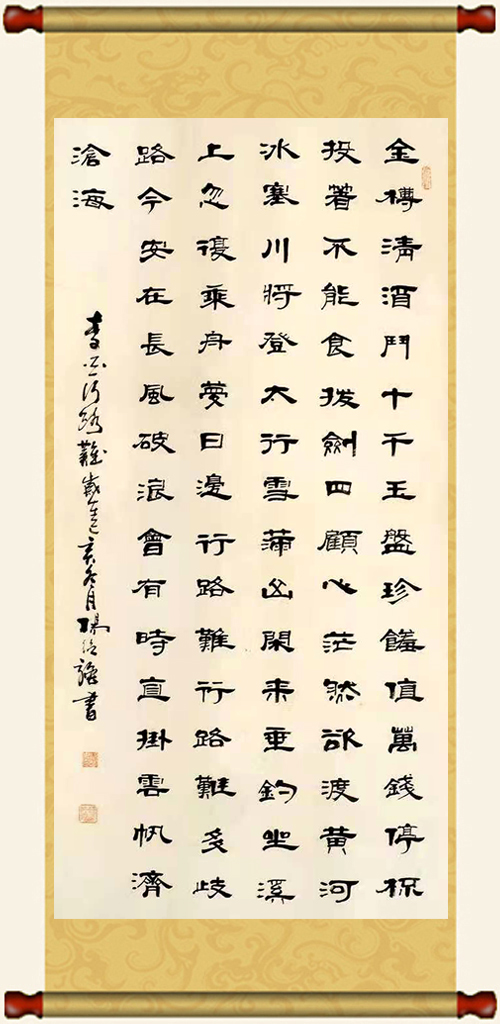 金樽清酒鬥十千玉盤珍饈值萬錢停杯
投著不能食拔劍四顧心茫然欲渡黃河
冰塞川將登太行雪滿山閑來垂釣坐溪
上忽復乘舟夢日邊行路難行路難多歧
路今安在長風破浪會有時直掛雲帆濟
滄海
李白行路難歲在亥冬月楊書